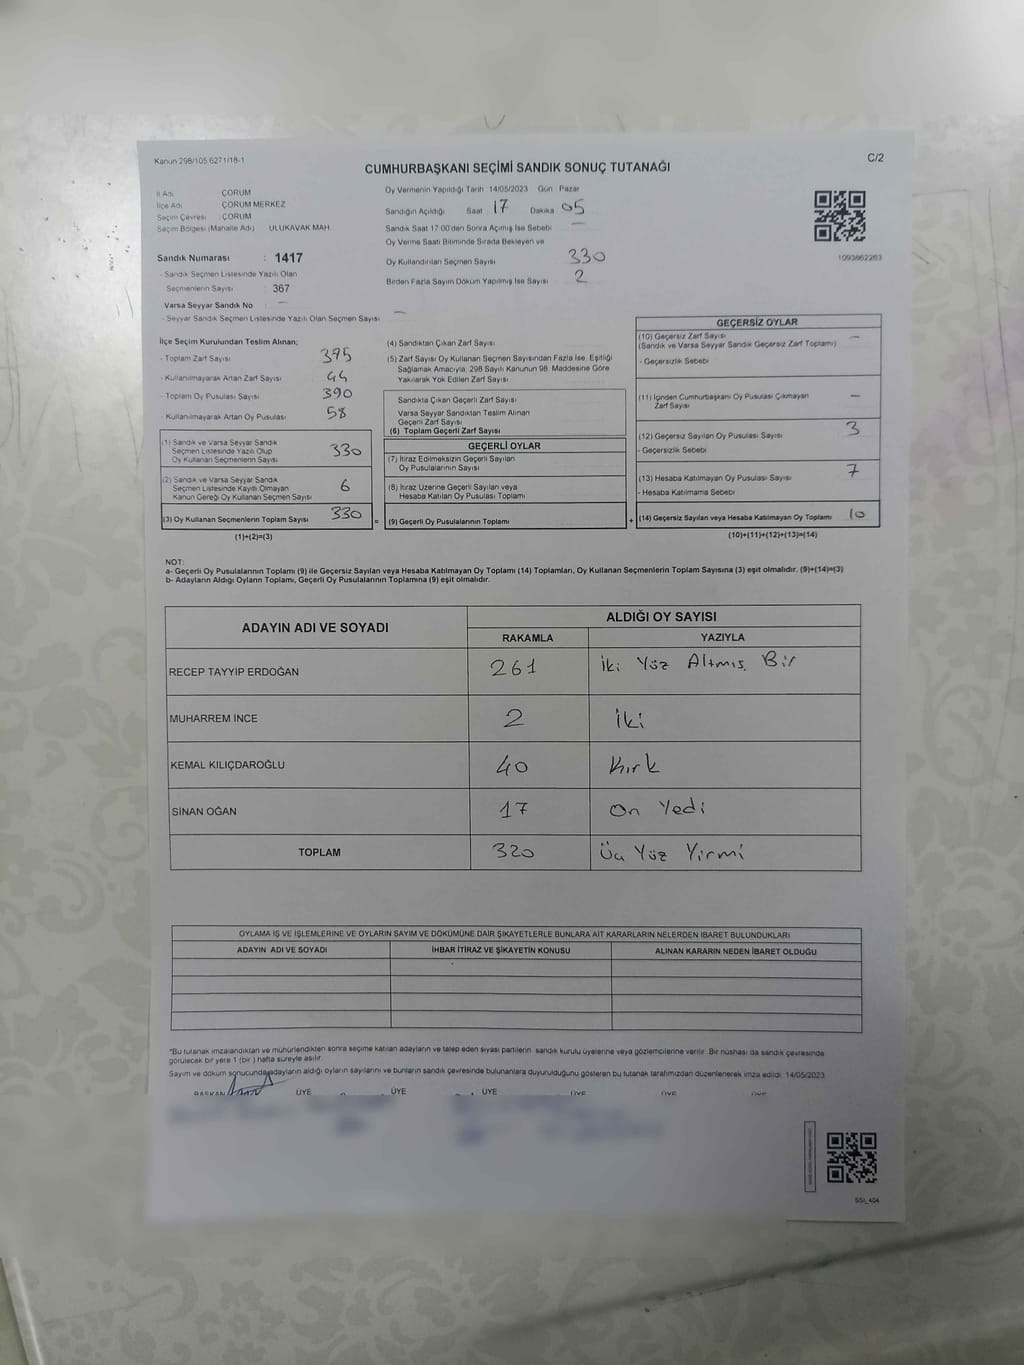 Kanun 298/105 6271/18-1
C/2
CUMHURBAŞKANI SEÇİMİ SANDIK SONUÇ TUTANAĞI
İl Adı ÇORUM
İlçe Adı ÇORUM MERKEZ
Seçim Çevresi : ÇORUM
Seçim Bölgesi (Mahalle Adı) ULUKAVAK MAH.
Sandık Numarası : 1417
- Sandık Seçmen Listesinde Yazılı Olan
Seçmenlerin Sayısı : 367
Varsa Seyyar Sandık No : —
- Seyyar Sandık Seçmen Listesinde Yazılı Olan Seçmen Sayısı —
Oy Vermenin Yapıldığı Tarih 14/05/2023 Gün Pazar
Sandığın Açıldığı Saat 17 Dakika 05
Sandık Saat 17.00'den Sonra Açımış İse Sebebi —
Oy Verme Saati Bitiminde Sırada Bekleyen ve
Oy Kullandırılan Seçmen Sayısı 330
Birden Fazla Sayım Döküm Yapılmış İse Sayısı 2
1093862263
İlçe Seçim Kurulundan Teslim Alınan;
- Toplam Zarf Sayısı 395
- Kullanılmayarak Artan Zarf Sayısı 44
- Toplam Oy Pusulası Sayısı 390
- Kullanılmayarak Artan Oy Pusulası 58
(1) Sandık ve Varsa Seyyar Sandık
Seçmen Listesinde Yazılı Olup
Oy Kullanan Seçmenlerin Sayısı 330
(2) Sandık ve Varsa Seyyar Sandık
Seçmen Listesinde Kayıtlı Olmayan
Kanun Gereği Oy Kullanan Seçmen Sayısı 6
(3) Oy Kullanan Seçmenlerin Toplam Sayısı 330
(1)+(2)=(3)
(4) Sandıktan Çıkan Zarf Sayısı
(5) Zarf Sayısı Oy Kullanan Seçmen Sayısından Fazla İse, Eşitliği
Sağlamak Amacıyla, 298 Sayılı Kanunun 98. Maddesine Göre
Yakılarak Yok Edilen Zarf Sayısı
Sandıkta Çıkan Geçerli Zarf Sayısı
Varsa Seyyar Sandıktan Teslim Alınan
Geçerli Zarf Sayısı
(6) Toplam Geçerli Zarf Sayısı
GEÇERLİ OYLAR
(7) İtiraz Edilmeksizin Geçerli Sayılan
Oy Pusulalarının Sayısı
(8) İtiraz Üzerine Geçerli Sayılan veya
Hesaba Katılan Oy Pusulası Toplamı
= (9) Geçerli Oy Pusulalarının Toplamı
GEÇERSİZ OYLAR
(10) Geçersiz Zarf Sayısı
(Sandık ve Varsa Seyyar Sandık Geçersiz Zarf Toplamı) —
- Geçersizlik Sebebi
(11) İçinden Cumhurbaşkanı Oy Pusulası Çıkmayan
Zarf Sayısı —
(12) Geçersiz Sayılan Oy Pusulası Sayısı 3
- Geçersizlik Sebebi
(13) Hesaba Katılmayan Oy Pusulası Sayısı 7
- Hesaba Katılmama Sebebi
+ (14) Geçersiz Sayılan veya Hesaba Katılmayan Oy Toplamı 10
(10)+(11)+(12)+(13)=(14)
NOT:
a- Geçerli Oy Pusulalarının Toplamı (9) ile Geçersiz Sayılan veya Hesaba Katılmayan Oy Toplamı (14) Toplamları, Oy Kullanan Seçmenlerin Toplam Sayısına (3) eşit olmalıdır. (9)+(14)=(3)
b- Adayların Aldığı Oyların Toplamı, Geçerli Oy Pusulalarının Toplamına (9) eşit olmalıdır.
ADAYIN ADI VE SOYADI
ALDIĞI OY SAYISI
RAKAMLA YAZIYLA
RECEP TAYYİP ERDOĞAN 261 İki Yüz Altmış Bir
MUHARREM İNCE 2 İki
KEMAL KILIÇDAROĞLU 40 Kırk
SİNAN OĞAN 17 On Yedi
TOPLAM 320 Üç Yüz Yirmi
OYLAMA İŞ VE İŞLEMLERİNE VE OYLARIN SAYIM VE DÖKÜMÜNE DAİR ŞİKAYETLERLE BUNLARA AİT KARARLARIN NELERDEN İBARET BULUNDUKLARI
ADAYIN ADI VE SOYADI İHBAR İTİRAZ VE ŞİKAYETİN KONUSU ALINAN KARARIN NEDEN İBARET OLDUĞU
*Bu tutanak imzalandıktan ve mühürlendikten sonra seçime katılan adayların ve talep eden siyasi partilerin sandık kurulu üyelerine veya gözlemcilerine verilir. Bir nüshası da sandık çevresinde
görülecek bir yere 1 (bir ) hafta süreyle asılır.
Sayım ve döküm sonucunda adayların aldığı oyların sayılarını ve bunların sandık çevresinde bulunanlara duyurulduğunu gösteren bu tutanak tarafımızdan düzenlenerek imza edildi. 14/05/2023
BAŞKAN ÜYE ÜYE ÜYE ÜYE ÜYE ÜYE
SSI_404